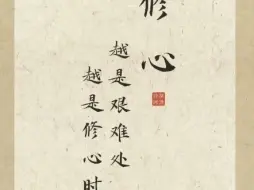 修心
越是艰难处
越是修心时